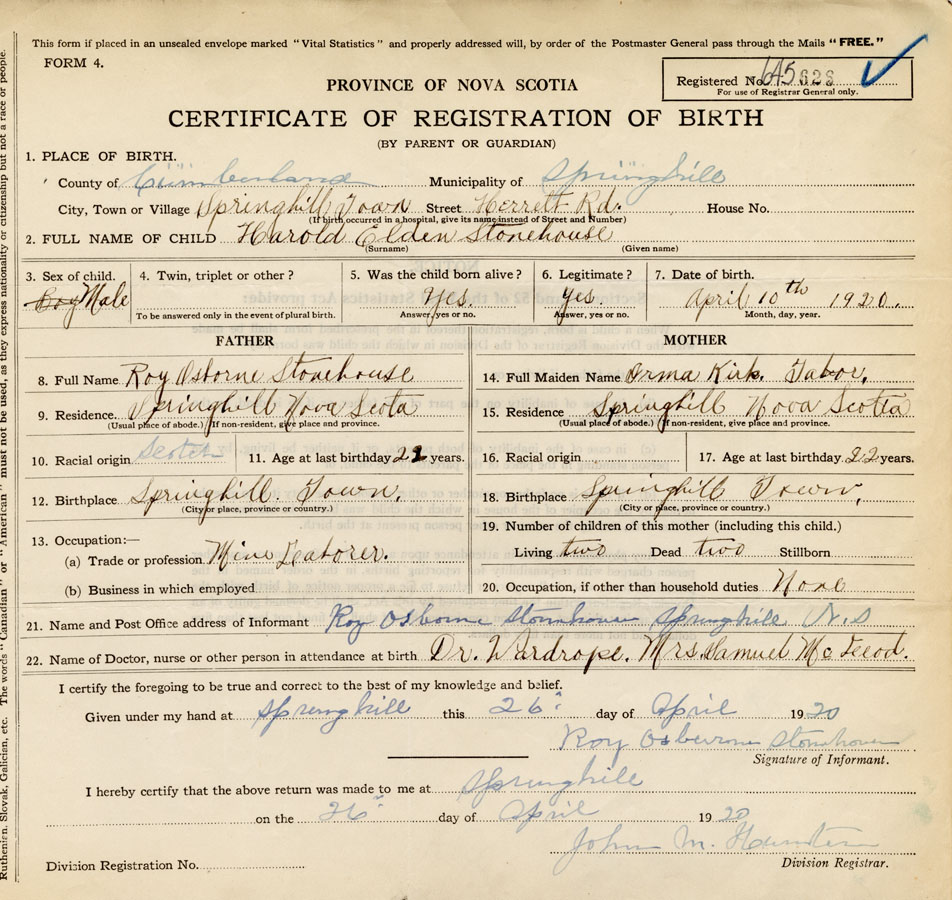 This form if placed in an unsealed envelope marked "Vital Statistics" and properly addressed will, by order of the Postmaster General pass through the Mails "FREE."
FORM 4.
Registered No. 645628
For use of Registrar General only.
PROVINCE OF NOVA SCOTIA
CERTIFICATE OF REGISTRATION OF BIRTH
(BY PARENT OR GUARDIAN)
1. PLACE OF BIRTH.
County of Cumberland Municipality of Springhill
City, Town or Village Springhill Town Street Herrett Rd. House No.
(If birth occurred in a hospital, give its name instead of Street and Number)
2. FULL NAME OF CHILD Harold Elden Stonehouse
(Surname) (Given name)
3. Sex of child. 4. Twin, triplet or other? 5. Was the child born alive? 6. Legitimate? 7. Date of birth.
Boy Male Yes. Yes. April 10th 1920.
To be answered only in the event of plural birth. Answer, yes or no. Answer, yes or no. Month, day, year.
FATHER MOTHER
8. Full Name Roy Osborne Stonehouse 14. Full Maiden Name Irma Kirk. Tabor.
9. Residence. Springhill Nova Scota 15. Residence Springhill Nova Scotia
(Usual place of abode.) If non-resident, give place and province. (Usual place of abode.) If non-resident, give place and province.
10. Racial origin Scotch 11. Age at last birthday years. 16. Racial origin 17. Age at last birthday 22 years.
12. Birthplace Springhill. Town. 18. Birthplace Springhill Town.
(City or place, province or country.) (City or place, province or country.)
13. Occupation:— 19. Number of children of this mother (including this child.)
(a) Trade or profession Mine Laborer. Living two Dead two Stillborn
(b) Business in which employed 20. Occupation, if other than household duties None
21. Name and Post Office address of Informant Roy Osborne Stonehouse Springhill N.S
22. Name of Doctor, nurse or other person in attendance at birth Dr. Wardrope. Mrs. Samuel McLeod.
I certify the foregoing to be true and correct to the best of my knowledge and belief.
Given under my hand at Springhill this 26 day of April 1920
Roy Osborne Stonehouse
Signature of Informant.
I hereby certify that the above return was made to me at Springhill
on the 26 day of April 1920
John M.
Division Registration No. Division Registrar.
Ruthenian, Slovak, Galician, etc. The words "Canadian" or "American" must not be used, as they express nationality or citizenship but not a race or people.